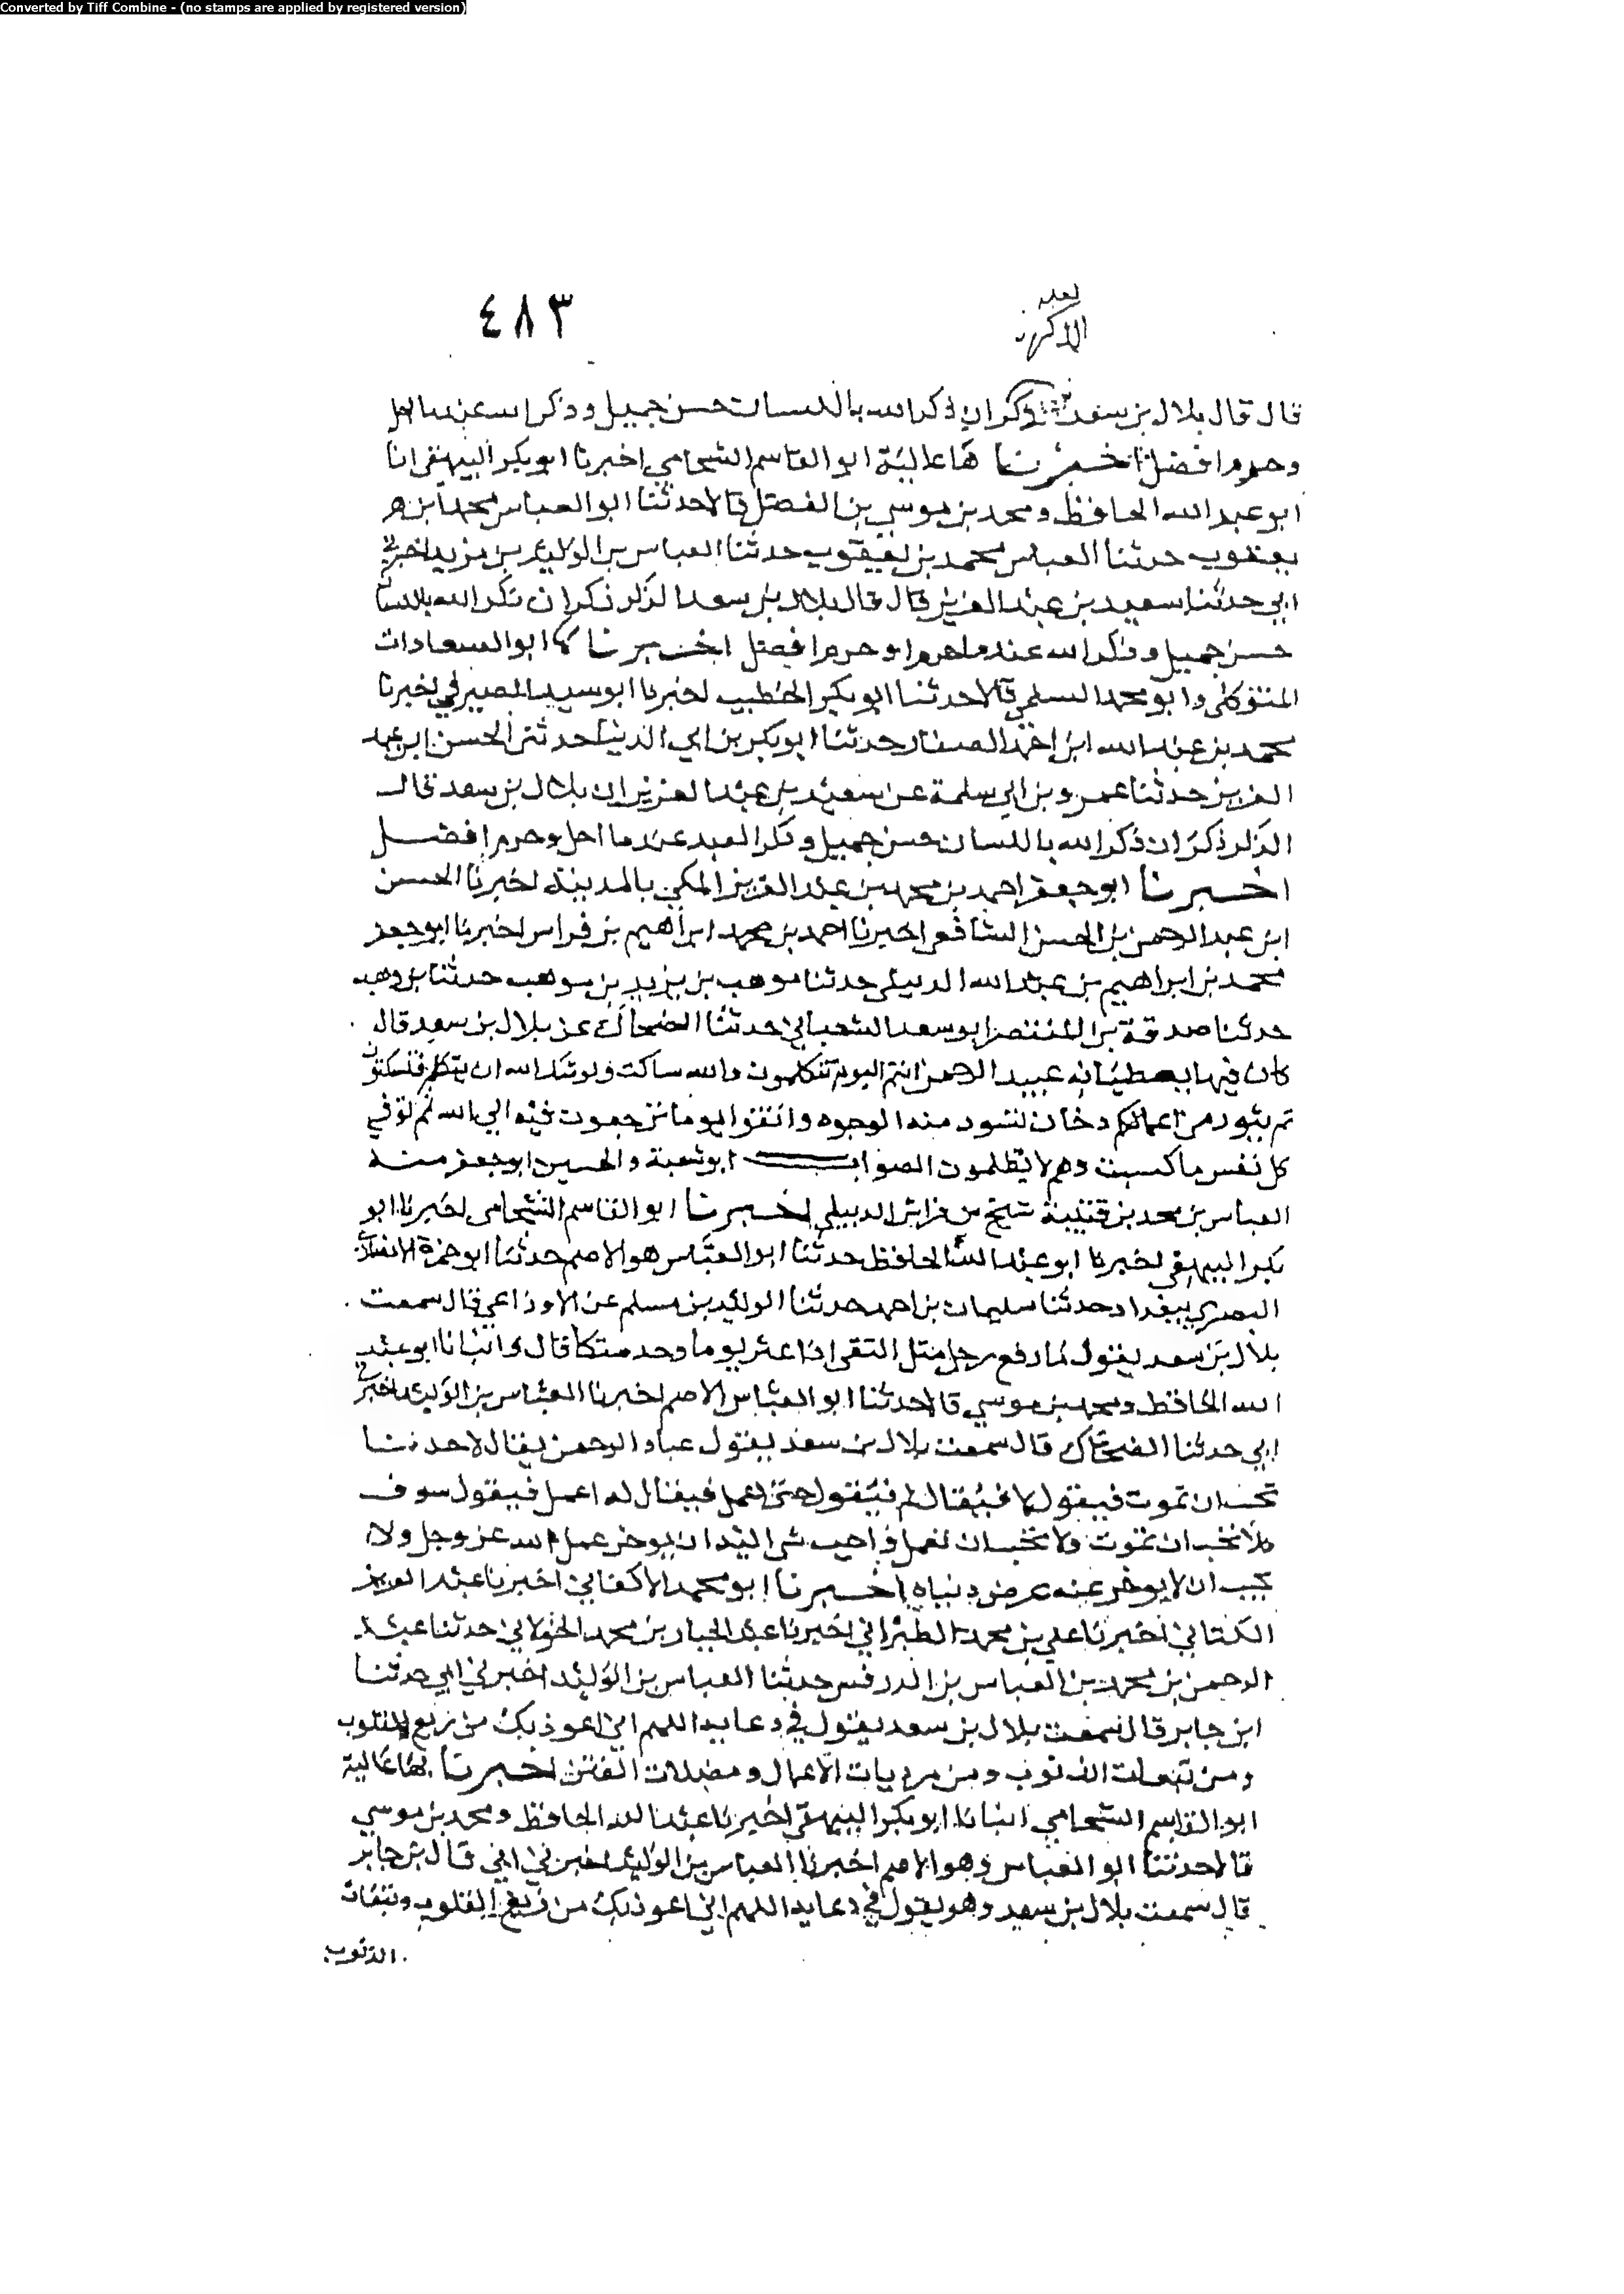 Converted by Tiff Combine - (no stamps are applied by registered version)
٤٨٣
قال قال بلال بن سعد ذكران ذكر الله باللسان حسن جميل وذكر الله عندما احل
وحرم افضل اخبرنا ها عالية ابو القاسم الشحامي اخبرنا ابو بكر البيهقي انا
ابو عبد الله الحافظ ومحمد بن موسي بن الفضل قالا حدثنا ابو العباس محمد بن
يعقوب حدثنا العباس محمد بن يعقوب حدثنا العباس بن الوليد بن مزيد اخبرني
ابي حدثنا سعيد بن عبد العزيز قال قال بلال بن سعد الذكر ذكران ذكر الله باللسان
حسن جميل وذكر الله عند ما احرم او حرم افضل اخبرنا ابو السعادات
المتوكلي وابو محمد السلمي قالا حدثنا ابو بكر الخطيب اخبرنا ابو سعيد الصيرفي اخبرنا
محمد بن عبد الله ابن احمد الصفار حدثنا ابو بكر بن ابي الدنيا حدثني الحسن ابن عبد
العزيز حدثنا عمرو بن ابي سلمة عن سعيد بن عبد العزيز ان بلال بن سعد قال
الذكر ذكران ذكر الله باللسان حسن جميل وذكر العبد عند ما احل وحرم افضل
اخبرنا ابو جعفر احمد بن محمد بن عبد العزيز المكي بالمدينة اخبرنا الحسن
ابن عبد الرحمن بن الحسن الشافعي اخبرنا احمد بن محمد ابراهيم بن فراس اخبرنا ابو جعفر
محمد بن ابراهيم بن عبد الله الدبيلي حدثنا موهب بن يزيد بن موهب حدثنا بن وهب
حدثنا صدقة بن المنتصر ابو سعد الشعباني حدثنا الضحاك عن بلال بن سعد قال
كان فيها عبيد الرحمن انتم اليوم تتكلمون والله ساكت ويوشك الله ان يتكلم فتسكتون
ثم يثور من اعمالكم دخان تسود منه الوجوه واتقوا يوما ترجعون فيه الي الله ثم توفي
كل نفس ما كسبت وهم لا يظلمون الصواب ابو شعبة والحسين ابو جعفر
العباس بن محمد بن قتيبة شيخ من الدبيلي اخبرنا ابو القاسم الشحامي اخبرنا ابو
بكر البيهقي اخبرنا ابو عبد الله الحافظ حدثنا ابو العباس هو الاصم حدثنا ابو حمزة الانصاري
البصري ببغداد حدثنا سليمان بن احمد حدثنا الوليد بن مسلم عن الاوزاعي قال سمعت
بلال بن سعد يقول لما دفع رجل مثل التقي اذا عثر يوما وجد متكا قال وانبانا ابو عبد
الله الحافظ ومحمد بن موسي قالا حدثنا ابو العباس الاصم اخبرنا العباس بن الوليد اخبرني
ابي حدثنا الضحاك قال سمعت بلال بن سعد يقول عباد الرحمن يقال لاحدنا
تحب ان تموت فيقول لا فيقال لم فيقول حتى اعمل فيقال له اعمل فيقول سوف
فلا تحب ان تموت ولا تحب ان تعمل واحب شي اليه ان يوخر عمل الله عز وجل ولا
يحب ان لا يوخر عنه عرض دنياه اخبرنا ابو محمد الاكفاني اخبرنا عبد العزيز
الكتاني اخبرنا علي بن محمد الطبراني اخبرنا عبد الجبار بن محمد الخولاني حدثنا عبد
الرحمن بن محمد بن العباس بن الدرفس حدثنا العباس بن الوليد اخبرني ابي حدثنا
ابن جابر قال سمعت بلال بن سعد يقول في دعايه اللهم اني اعوذ بك من زيغ القلوب
ومن تبعات الذنوب ومن مرديات الاعمال ومضلات الفتن اخبرنا بها عالية
ابو القاسم الشحامي انبانا ابو بكر البيهقي اخبرنا عبد الله الحافظ ومحمد بن موسي
قالا حدثنا ابو العباس وهو الاصم اخبرنا العباس بن الوليد اخبرني ابي قال بن جابر
قال سمعت بلال بن سعد وهو يقول في دعايه اللهم اني اعوذ بك من زيغ القلوب وتبعات
الذنوب